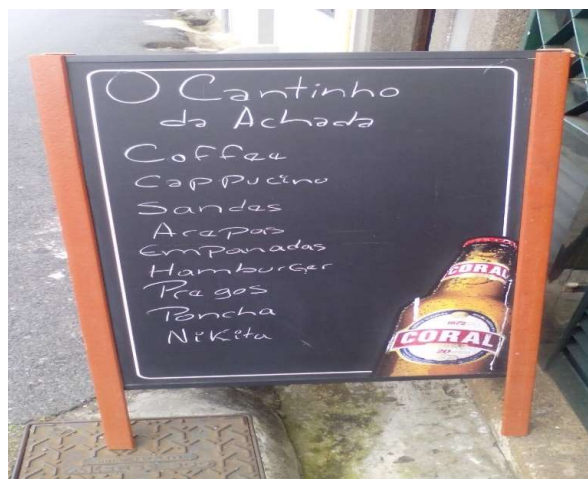 O Cantinho
da Achada
Coffee
Cappucino
Sandes
Arepas
Empanadas
Hamburger
Pregos
Poncha
Nikita
CORAL
1872
CORAL